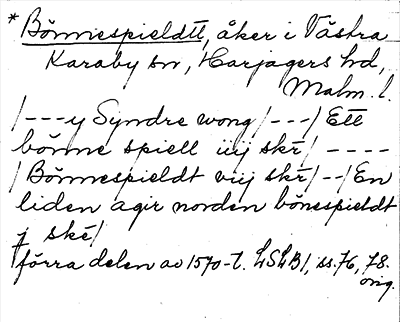 * Bönnespieldtt, åker i Västra
Karaby sn, Harjagers hd,
Malm. l.
/---y Syndre wong/---/Ett
bönne spiell iiij skr/----
/Bönnespieldt viij skr/--/En
liden agir norden bönespieldt
j ské/
förra delen av 1570-t. LSLB1, ss. 76, 78.
orig.